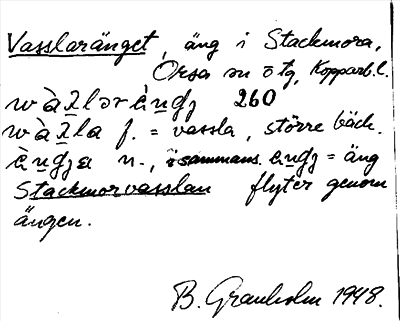 Vasslaränget, äng i Stackmora,
Orsa sn o tg, Kopparb. l.
260
f. = vassla, större bäck.
n., i sammans. = äng
Stackmorvasslan flyter genom
ängen.
B. Granholm 1948.